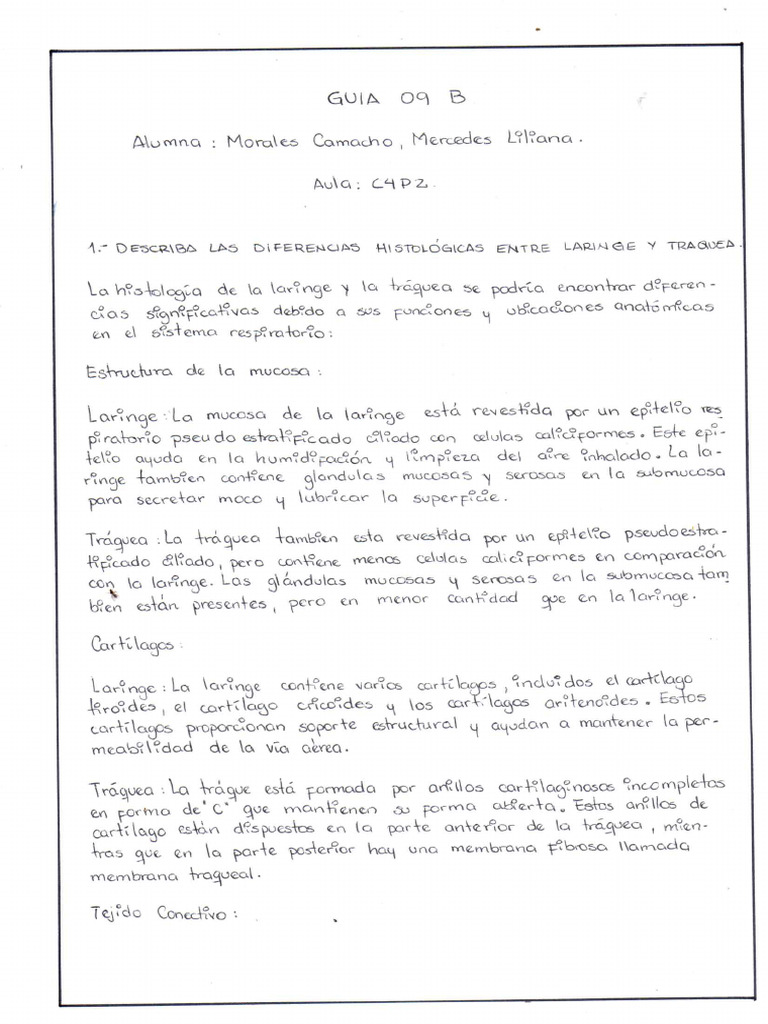 GUIA 09 B
Alumna : Morales Camacho, Mercedes Liliana.
Aula: C4P2.
1.- DESCRIBA LAS DIFERENCIAS HISTOLÓGICAS ENTRE LARINGE Y TRAQUEA.
La histología de la laringe y la tráquea se podría encontrar diferen-
cias significativas debido a sus funciones y ubicaciones anatómicas
en el sistema respiratorio:
Estructura de la mucosa:
Laringe: La mucosa de la laringe está revestida por un epitelio res
piratorio pseudoestratificado ciliado con celulas caliciformes. Este epi-
telio ayuda en la humidifación y limpieza del aire inhalado. La la-
ringe tambien contiene glandulas mucosas y serosas en la submucosa
para secretar moco y lubricar la superficie.
Tráquea: La tráquea tambien esta revestida por un epitelio pseudoestra-
tificado ciliado, pero contiene menos celulas caliciformes en comparación
con la laringe. Las glándulas mucosas y serosas en la submucosa tam
bien están presentes, pero en menor cantidad que en la laringe.
Cartílagos:
Laringe: La laringe contiene varios cartílagos, incluidos el cartílago
tiroides, el cartílago cricoides y los cartílagos aritenoides. Estos
cartílagos proporcionan soporte estructural y ayudan a mantener la per-
meabilidad de la vía aérea.
Tráquea: La tráque está formada por anillos cartilaginosos incompletas
en forma de "C" que mantienen su forma abierta. Estos anillos de
cartílago están dispuestos en la parte anterior de la tráquea, mien-
tras que en la parte posterior hay una membrana fibrosa llamada
membrana traqueal.
Tejido Conectivo: